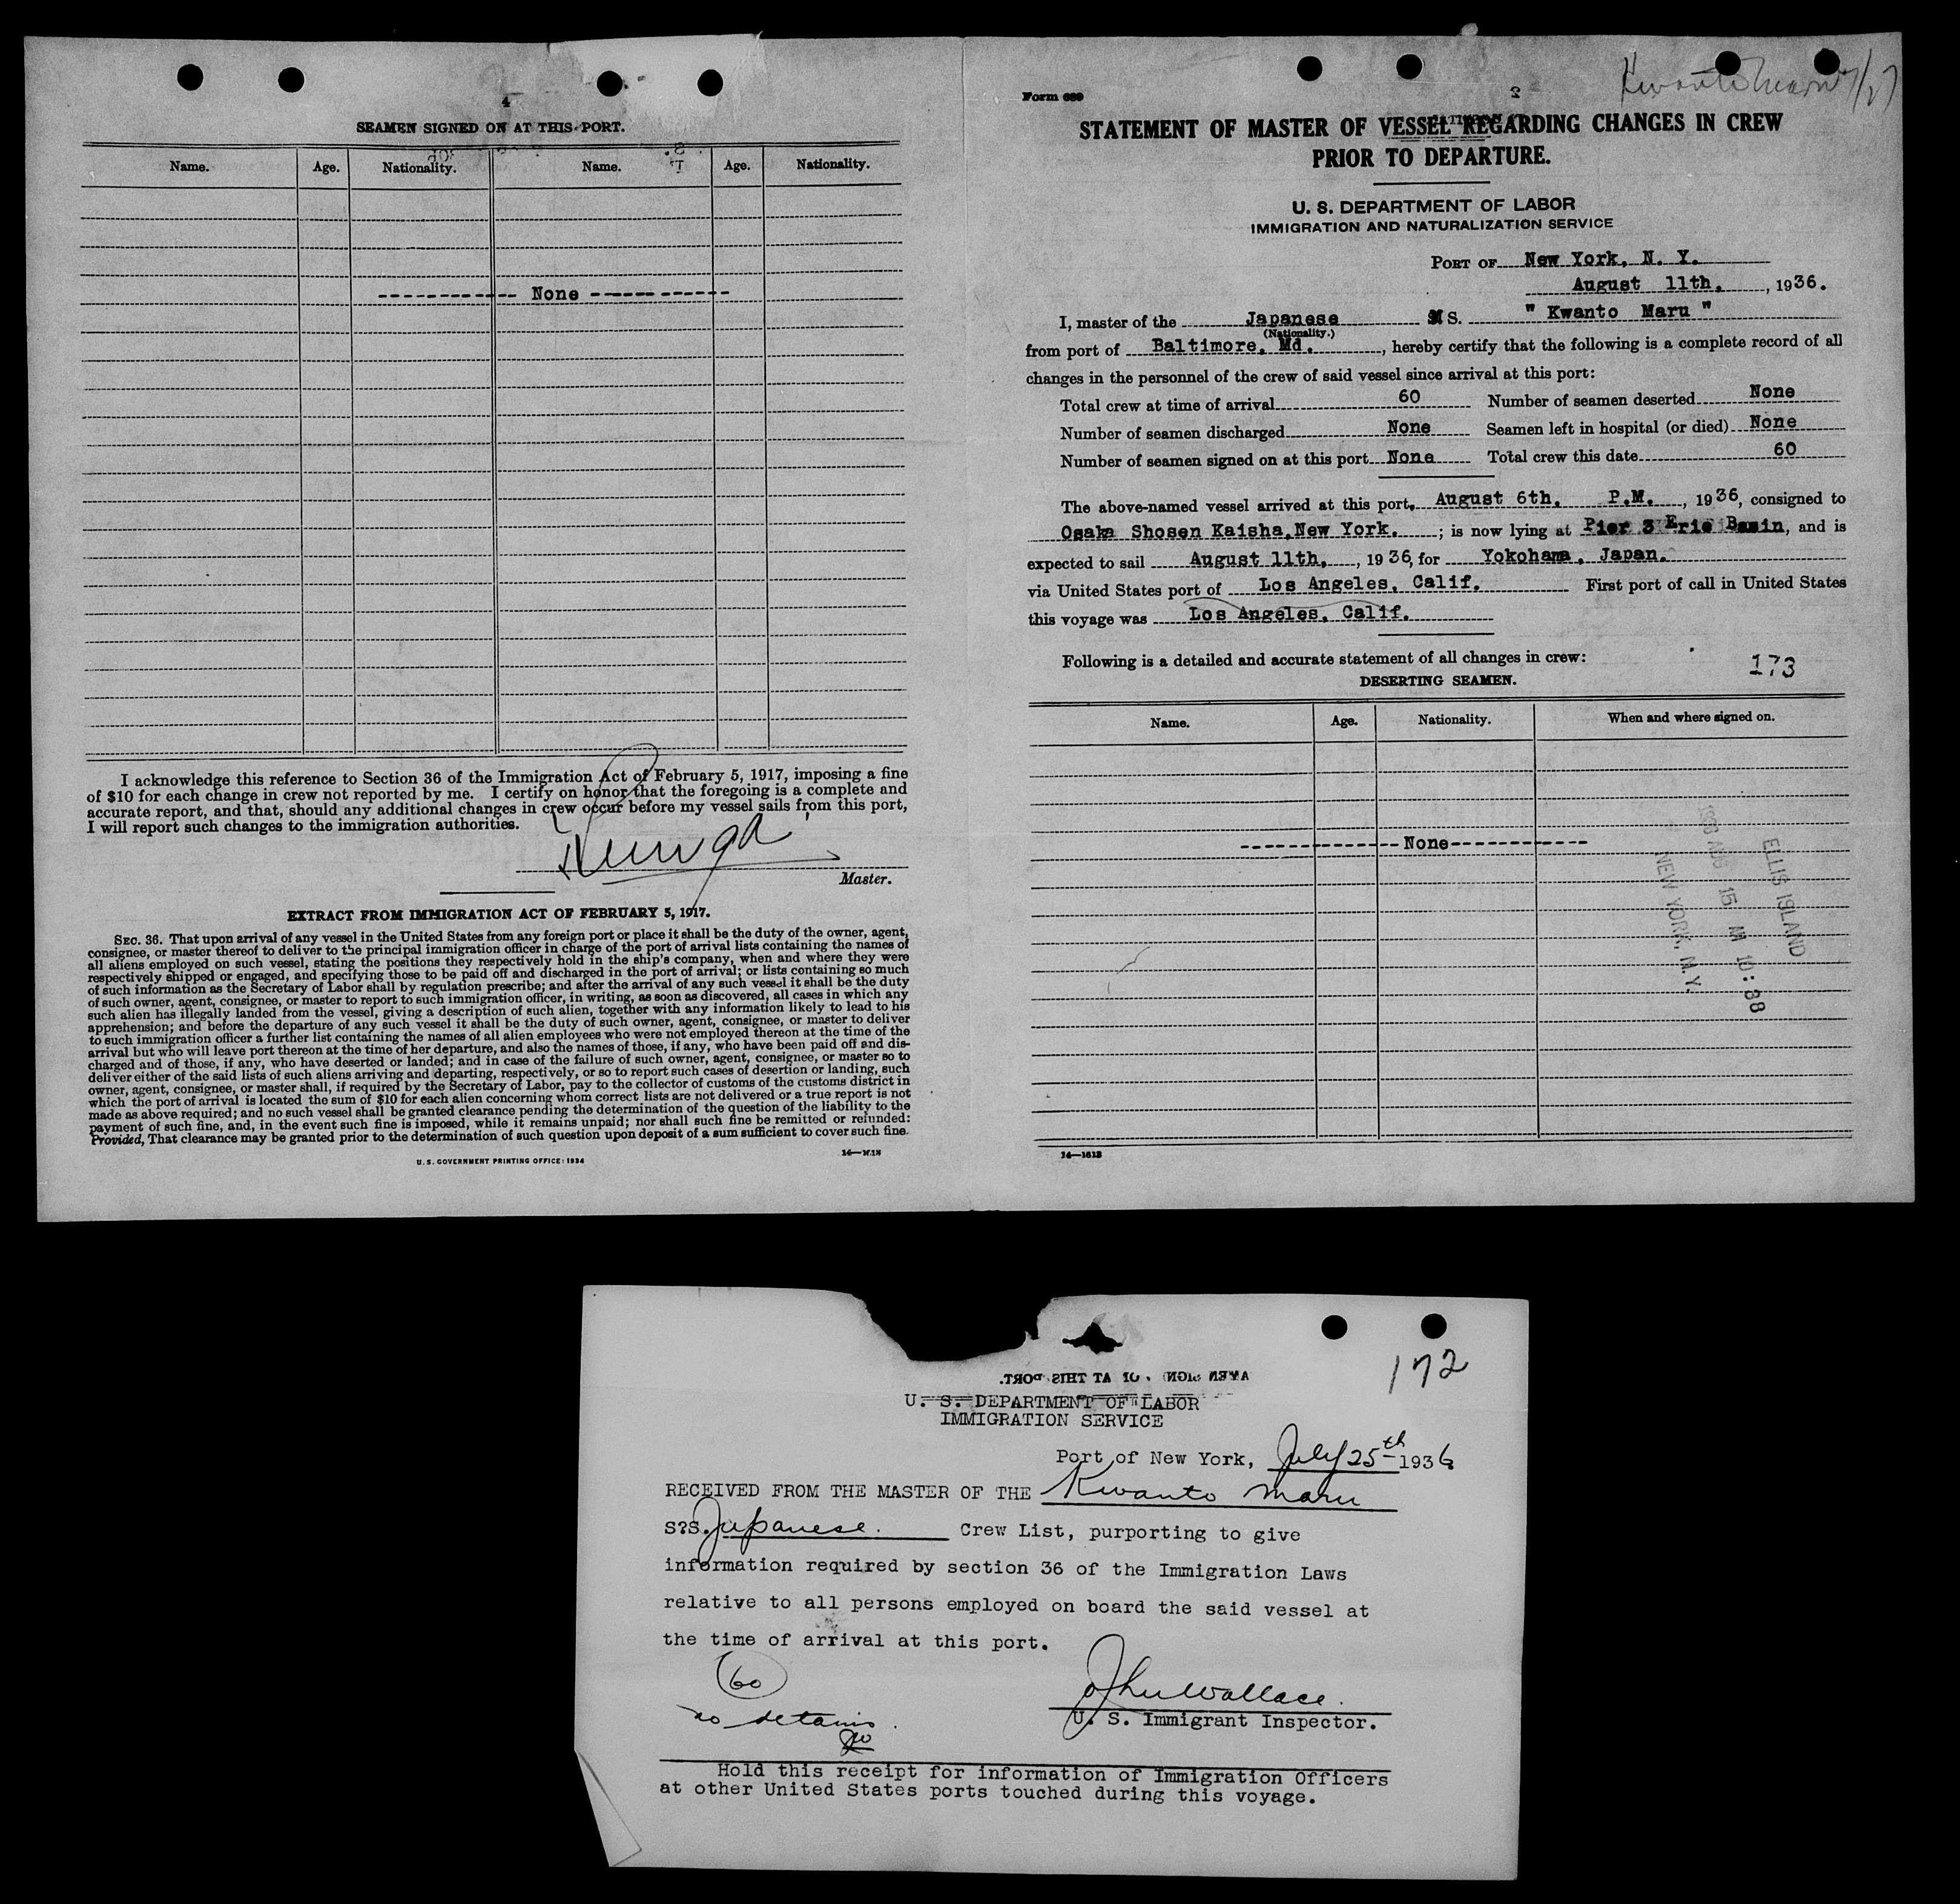 4
SEAMEN SIGNED ON AT THIS PORT.
Name. Age. Nationality. Name. Age. Nationality.
------------ None ------------
I acknowledge this reference to Section 36 of the Immigration Act of February 5, 1917, imposing a fine
of $10 for each change in crew not reported by me. I certify on honor that the foregoing is a complete and
accurate report, and that, should any additional changes in crew occur before my vessel sails from this port,
I will report such changes to the immigration authorities.
Master.
EXTRACT FROM IMMIGRATION ACT OF FEBRUARY 5, 1917.
SEC. 36. That upon arrival of any vessel in the United States from any foreign port or place it shall be the duty of the owner, agent,
consignee, or master thereof to deliver to the principal immigration officer in charge of the port of arrival lists containing the names of
all aliens employed on such vessel, stating the positions they respectively hold in the ship's company, when and where they were
respectively shipped or engaged, and specifying those to be paid off and discharged in the port of arrival; or lists containing so much
of such information as the Secretary of Labor shall by regulation prescribe; and after the arrival of any such vessel it shall be the duty
of such owner, agent, consignee, or master to report to such immigration officer, in writing, as soon as discovered, all cases in which any
such alien has illegally landed from the vessel, giving a description of such alien, together with any information likely to lead to his
apprehension; and before the departure of any such vessel it shall be the duty of such owner, agent, consignee, or master to deliver
to such immigration officer a further list containing the names of all alien employees who were not employed thereon at the time of the
arrival but who will leave port thereon at the time of her departure, and also the names of those, if any, who have been paid off and dis-
charged and of those, if any, who have deserted or landed; and in case of the failure of such owner, agent, consignee, or master so to
deliver either of the said lists of such aliens arriving and departing, respectively, or so to report such cases of desertion or landing, such
owner, agent, consignee, or master shall, if required by the Secretary of Labor, pay to the collector of customs of the customs district in
which the port of arrival is located the sum of $10 for each alien concerning whom correct lists are not delivered or a true report is not
made as above required; and no such vessel shall be granted clearance pending the determination of the question of the liability to the
payment of such fine, and, in the event such fine is imposed, while it remains unpaid; nor shall such fine be remitted or refunded:
Provided, That clearance may be granted prior to the determination of such question upon deposit of a sum sufficient to cover such fine.
U. S. GOVERNMENT PRINTING OFFICE: 1934
Kwanto Maru 7/27
Form 689
STATEMENT OF MASTER OF VESSEL REGARDING CHANGES IN CREW
PRIOR TO DEPARTURE.
U. S. DEPARTMENT OF LABOR
IMMIGRATION AND NATURALIZATION SERVICE
PORT OF New York, N. Y.
August 11th. , 1936.
I, master of the Japanese M S. " Kwanto Maru "
(Nationality.)
from port of Baltimore, Md. , hereby certify that the following is a complete record of all
changes in the personnel of the crew of said vessel since arrival at this port:
Total crew at time of arrival 60 Number of seamen deserted None
Number of seamen discharged None Seamen left in hospital (or died) None
Number of seamen signed on at this port None Total crew this date 60
The above-named vessel arrived at this port, August 6th. P.M. , 1936, consigned to
Osaka Shosen Kaisha, New York. ; is now lying at Pier 3 Erie Basin, and is
expected to sail August 11th. , 1936, for Yokohama, Japan.
via United States port of Los Angeles, Calif. First port of call in United States
this voyage was Los Angeles, Calif.
Following is a detailed and accurate statement of all changes in crew:
173
DESERTING SEAMEN.
Name. Age. Nationality. When and where signed on.
------------ None ------------
ELLIS ISLAND
1936 AUG 15 AM 10:38
NEW YORK, N. Y.
14—1613
172
U. S. DEPARTMENT OF LABOR
IMMIGRATION SERVICE
Port of New York, July 25th 1936
RECEIVED FROM THE MASTER OF THE Kwanto Maru
S?S. Japanese. Crew List, purporting to give
information required by section 36 of the Immigration Laws
relative to all persons employed on board the said vessel at
the time of arrival at this port.
60
no detains.
John Wallace.
U. S. Immigrant Inspector.
Hold this receipt for information of Immigration Officers
at other United States ports touched during this voyage.